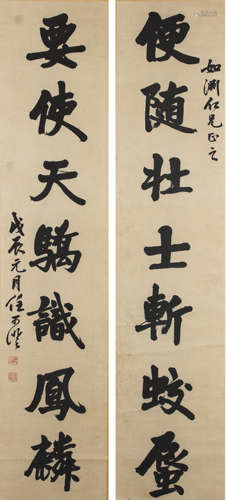 如淵仁兄正之
便随壮士斬蛟蜃
要使天驕識鳳麟
戊辰元月任可澄